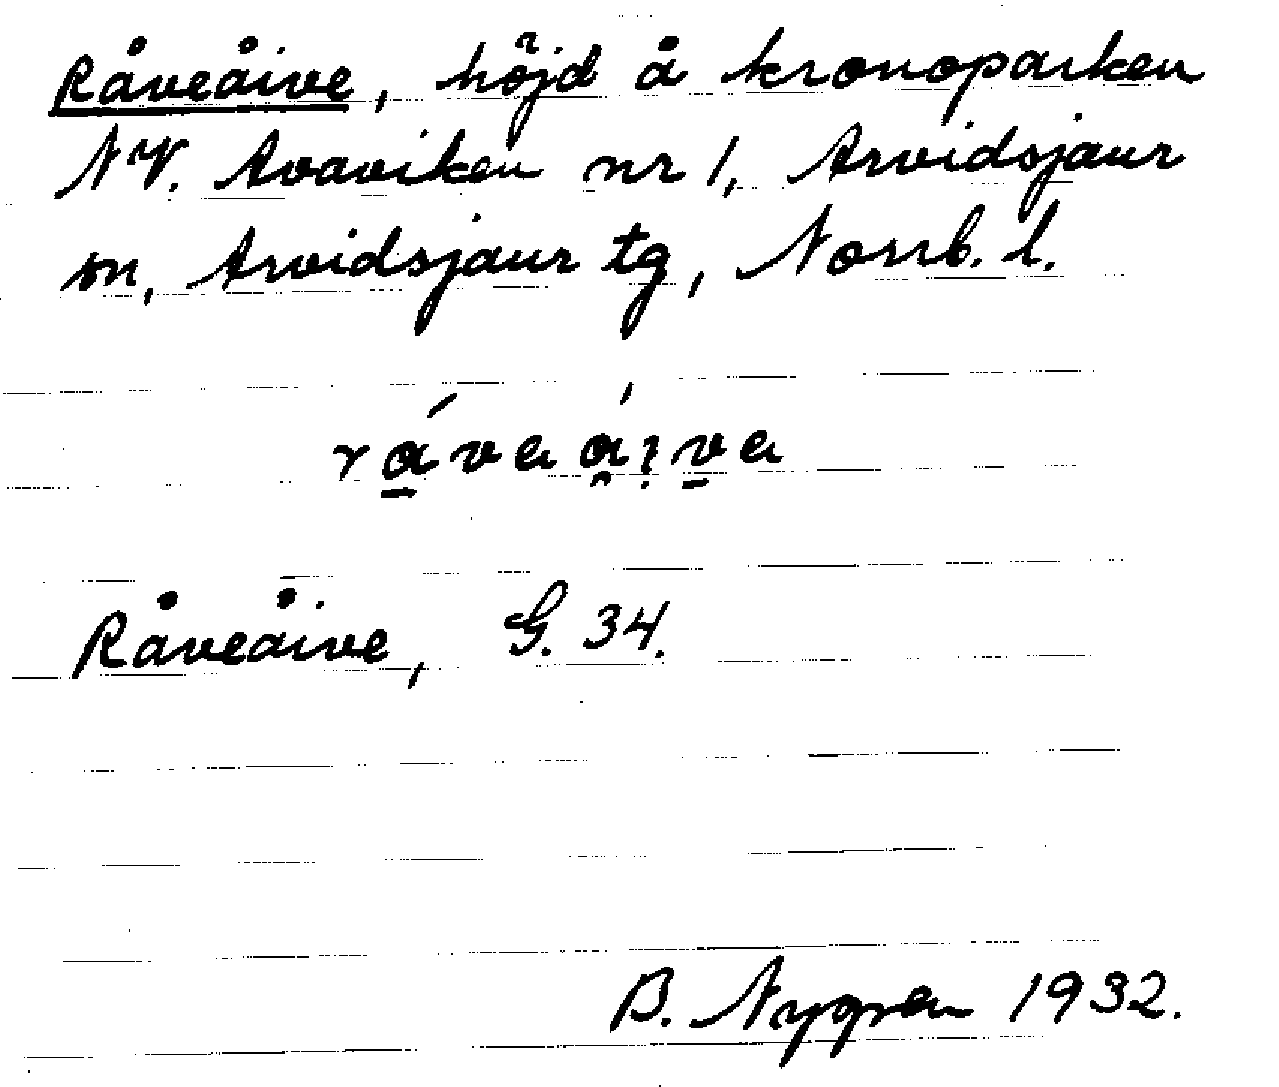 Råveåive, höjd å kronoparken
NV. Avaviken nr 1, Arvidsjaur
sn, Arvidsjaur tg, Norrb. l.
rá̱vɐá̯ı̣v̱ɐ
Råveåive, G. 34.
B. Nygren 1932.